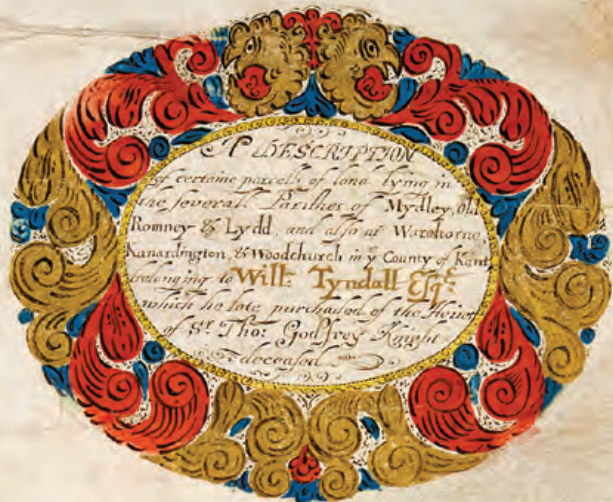 A DESCRIPTION
of certaine parcells of land lying in
the severall Parishes of Mydley, Old
Romney & Lydd, and also at Warehorne,
Kanardington, & Woodchurch in yᵉ County of Kent,
belonging to Willᵐ: Tyndall Esqʳ:
which he late purchased of the Heires
of Sʳ Tho: Godfrey Knight
deceased